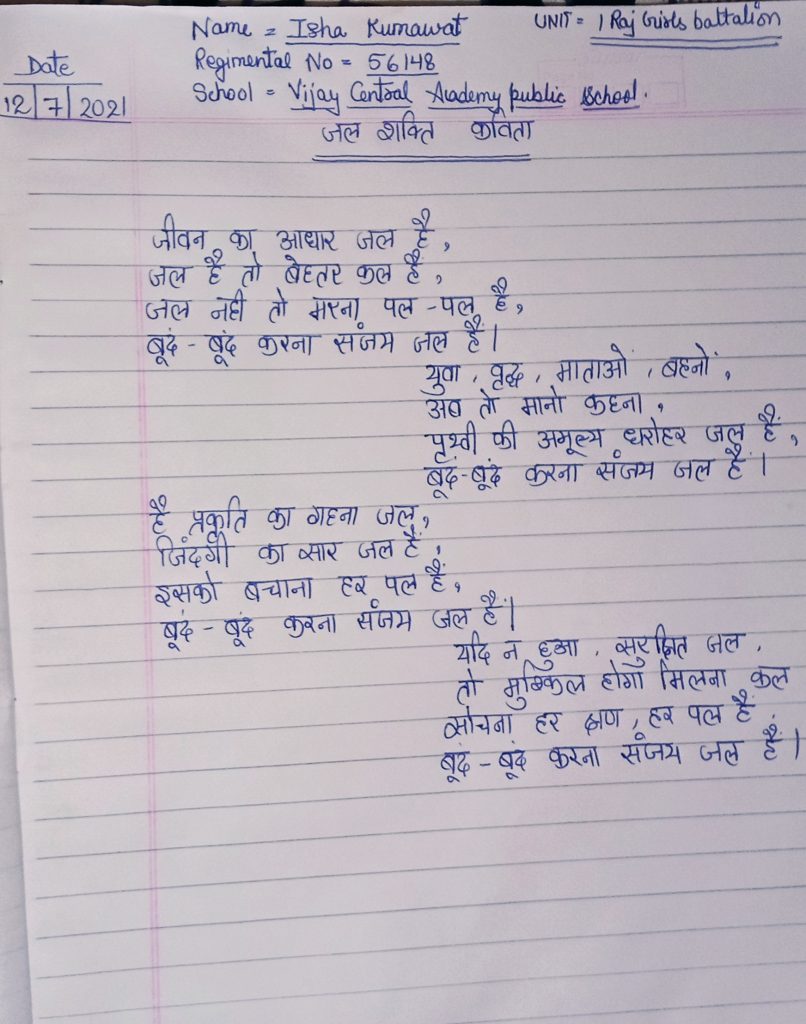 Name = Isha Kumawat UNIT = 1 Raj Girls battalion
Regimental No = 56148
Date
School = Vijay Central Academy public School.
12/7/2021
जल शक्ति कविता
जीवन का आधार जल है,
जल है तो बेहतर कल है,
जल नही तो मरना पल-पल है,
बूंद - बूंद करना संजय जल हैं।
युवा, वृद्ध, माताओं, बहनों,
अब तो मानो कहना,
पृथ्वी की अमूल्य धरोहर जल हैं,
बूंद-बूंद करना संजय जल हैं।
है प्रकृति का गहना जल,
जिंदगी का सार जल हैं,
इसको बचाना हर पल हैं,
बूंद - बूंद करना संजय जल हैं।
यदि न हुआ, सुरक्षित जल,
तो मुश्किल होगा मिलना कल
सोचना हर क्षण, हर पल हैं,
बूंद - बूंद करना संजय जल हैं।